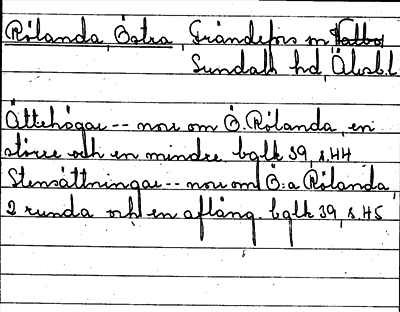 Rölanda, Östra, Frändefors sn Valbo
Sundals hd, Älvsb.l.
Ättehögar -- norr om Ö. Rölanda, en
större och en mindre. bglk 39, s.44
Stensättningar -- norr om Ö:a Rölanda,
2 runda och en aflång. bglk 39, s.45